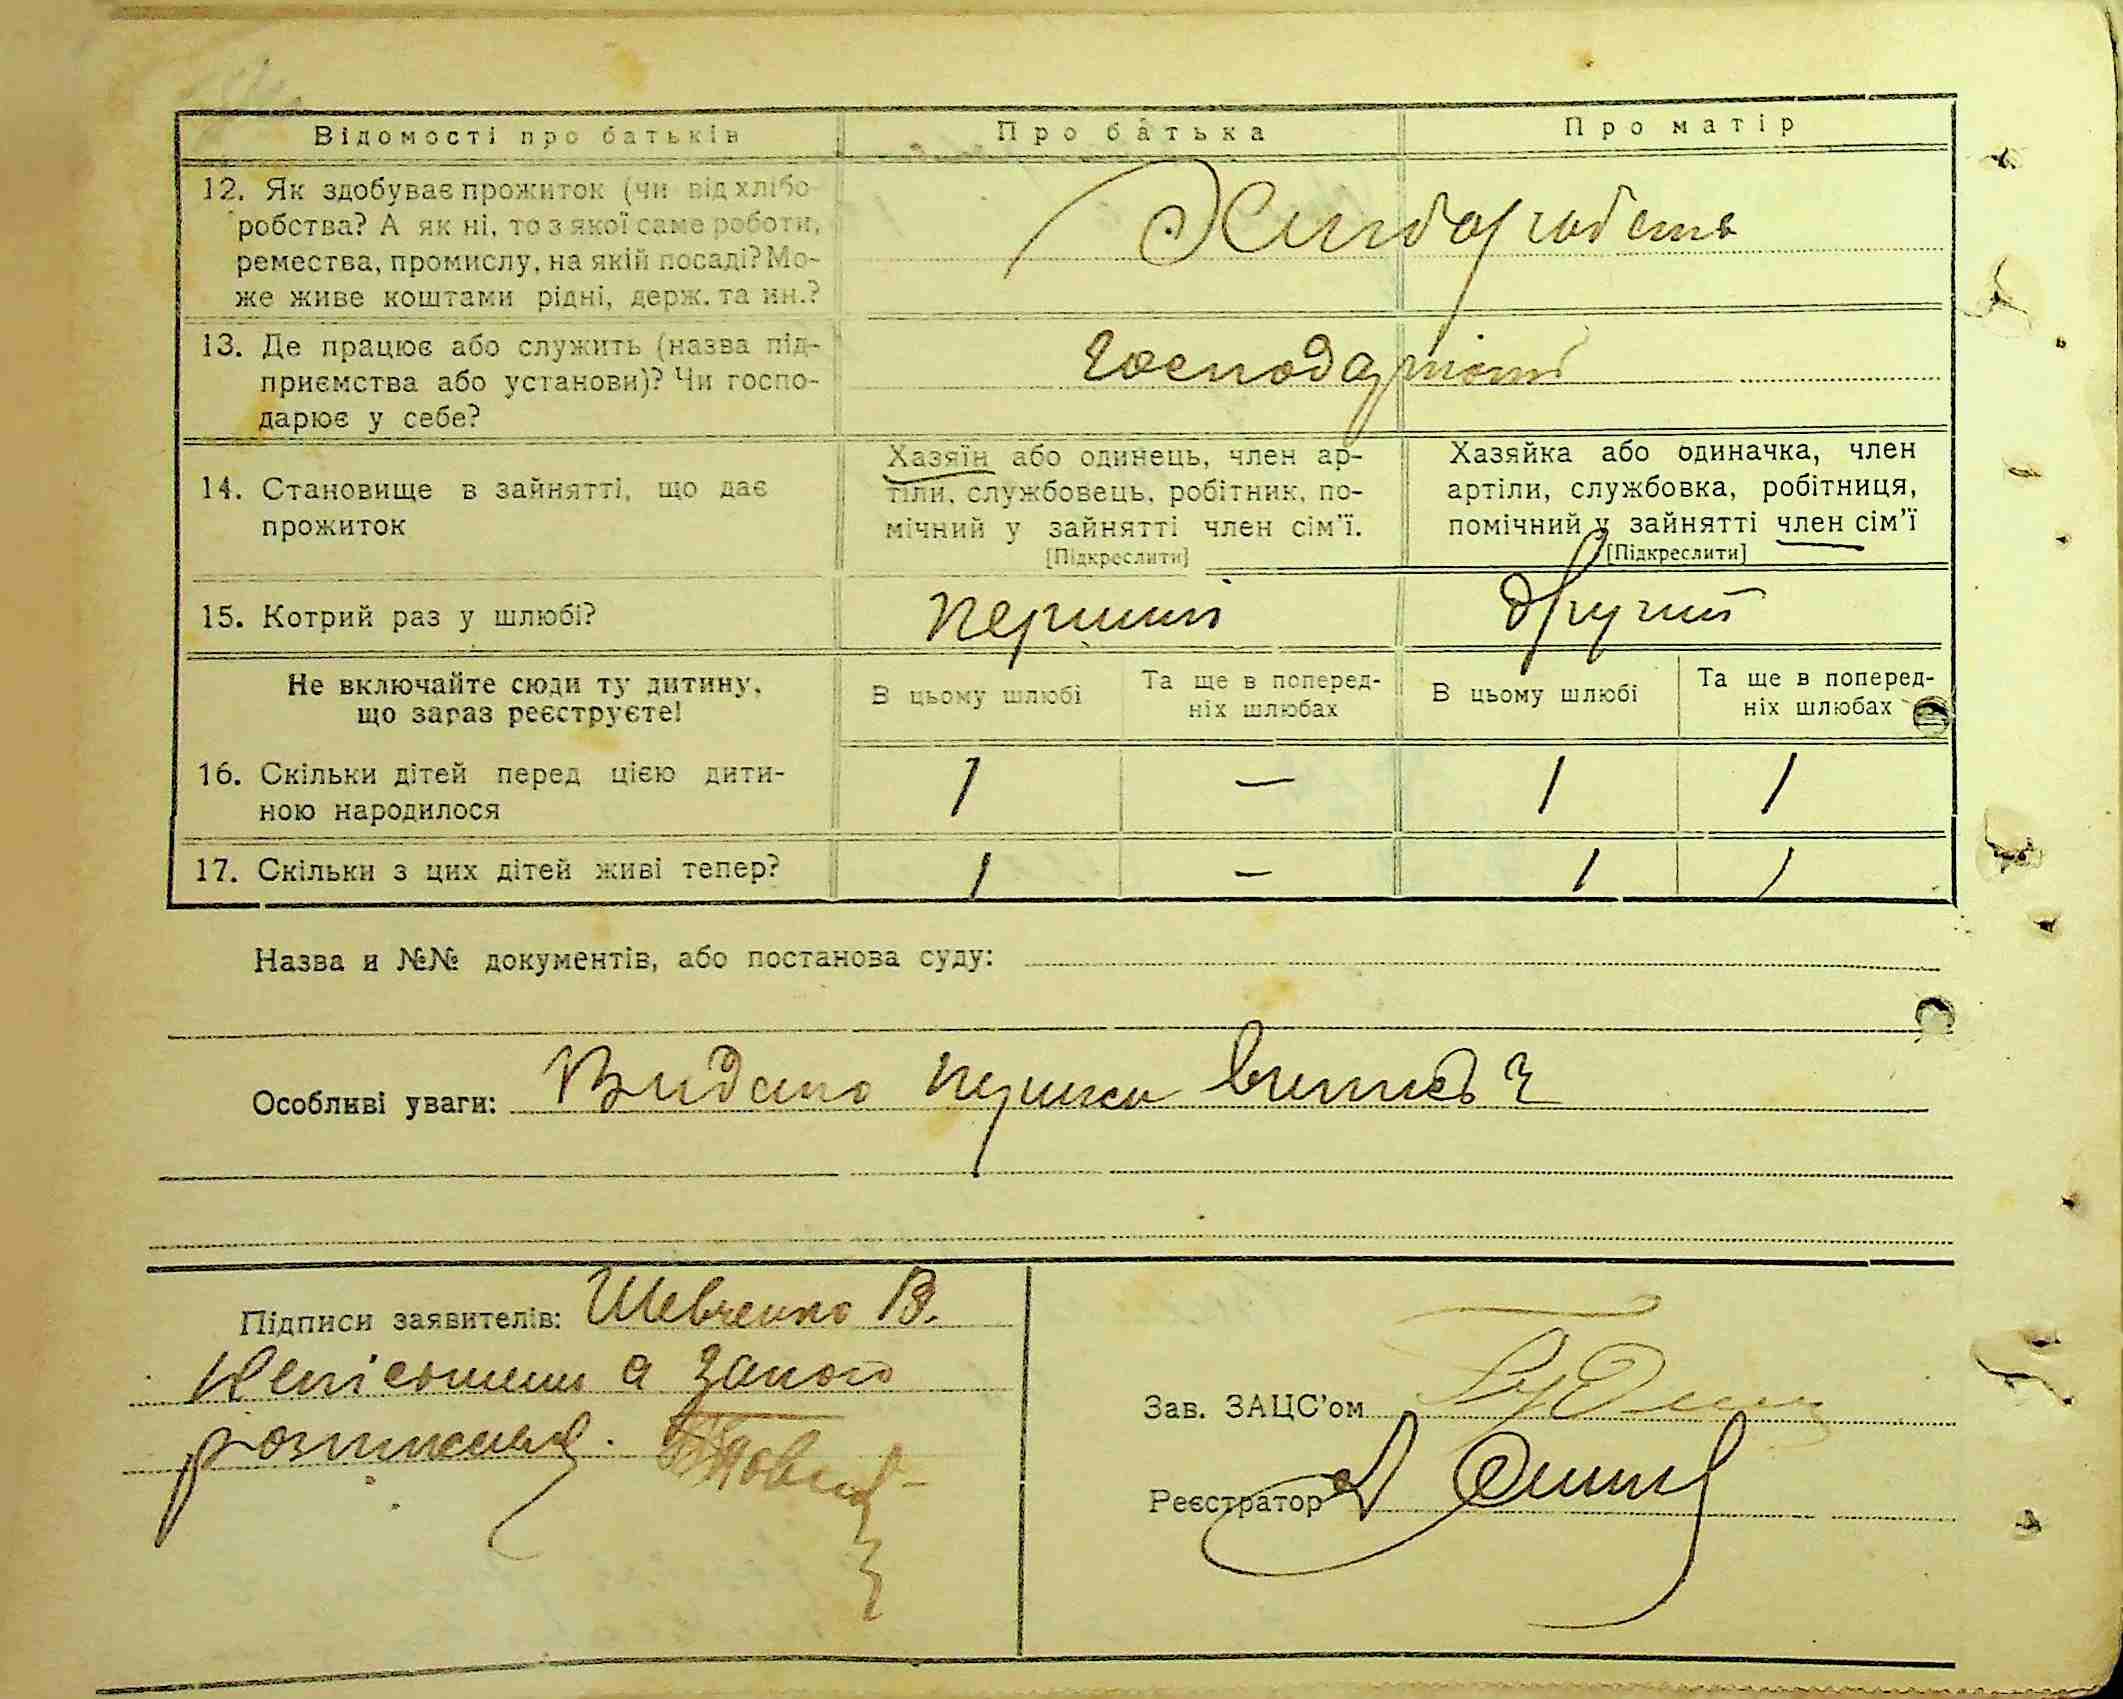 Відомості про батьків Про батька Про матір
12. Як здобуває прожиток (чи від хлібо
робства? А як ні, то з якої саме роботи,
ремества, промислу, на якій посаді? Мо-
же живе коштами рідні, держ. та ин.?
13. Де працює або служить (назва під-
приємства або установи)? Чи госпо-
дарює у себе?
14. Становище в зайнятті, що дає
прожиток
Хазяїн або одинець, член ар-
тіли, службовець, робітник, по-
мічний у зайнятті член сім'ї.
[Підкреслити]
Хазяйка або одиначка, член
артіли, службовка, робітниця,
помічний у зайнятті член сім'ї
[Підкреслити]
15. Котрий раз у шлюбі? перший другий
Не включайте сюди ту дитину,
що зараз реєструєте!
В цьому шлюбі
Та ще в поперед-
ніх шлюбах
В цьому шлюбі
Та ще в поперед-
ніх шлюбах
16. Скільки дітей перед цією дити-
ною народилося
1 — 1 1
17. Скільки з цих дітей живі тепер? 1 — 1 1
Назва и №№ документів, або постанова суду:
Особливі уваги: Видано
Підписи заявителів: Шевченко В.
а
Зав. ЗАЦС'ом
Реєстратор